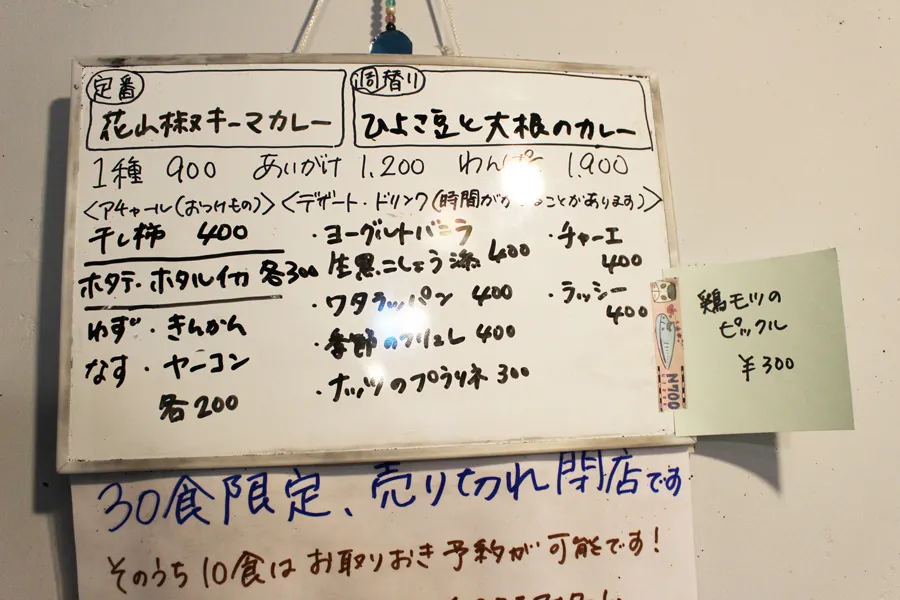 定番
花山椒キーマカレー
週替り
ひよこ豆と大根のカレー
1種 900 あいがけ 1,200 わんぱく 1,900
<アチャール(おつけもの)> <デザート・ドリンク(時間がかかることがあります)>
干し柿 400
ホタテ・ホタルイカ 各300
ゆず・きんかん
なす・ヤーコン
各200
・ヨーグルトバニラ
生黒こしょう添 400
・ワタラッパン 400
・季節のブリュレ 400
・ナッツのプラリネ 300
・チャーエ
400
・ラッシー
400
鶏モツの
ピックル
¥300
N700
30食限定、売り切れ閉店です
そのうち10食はお取りおき予約が可能です!